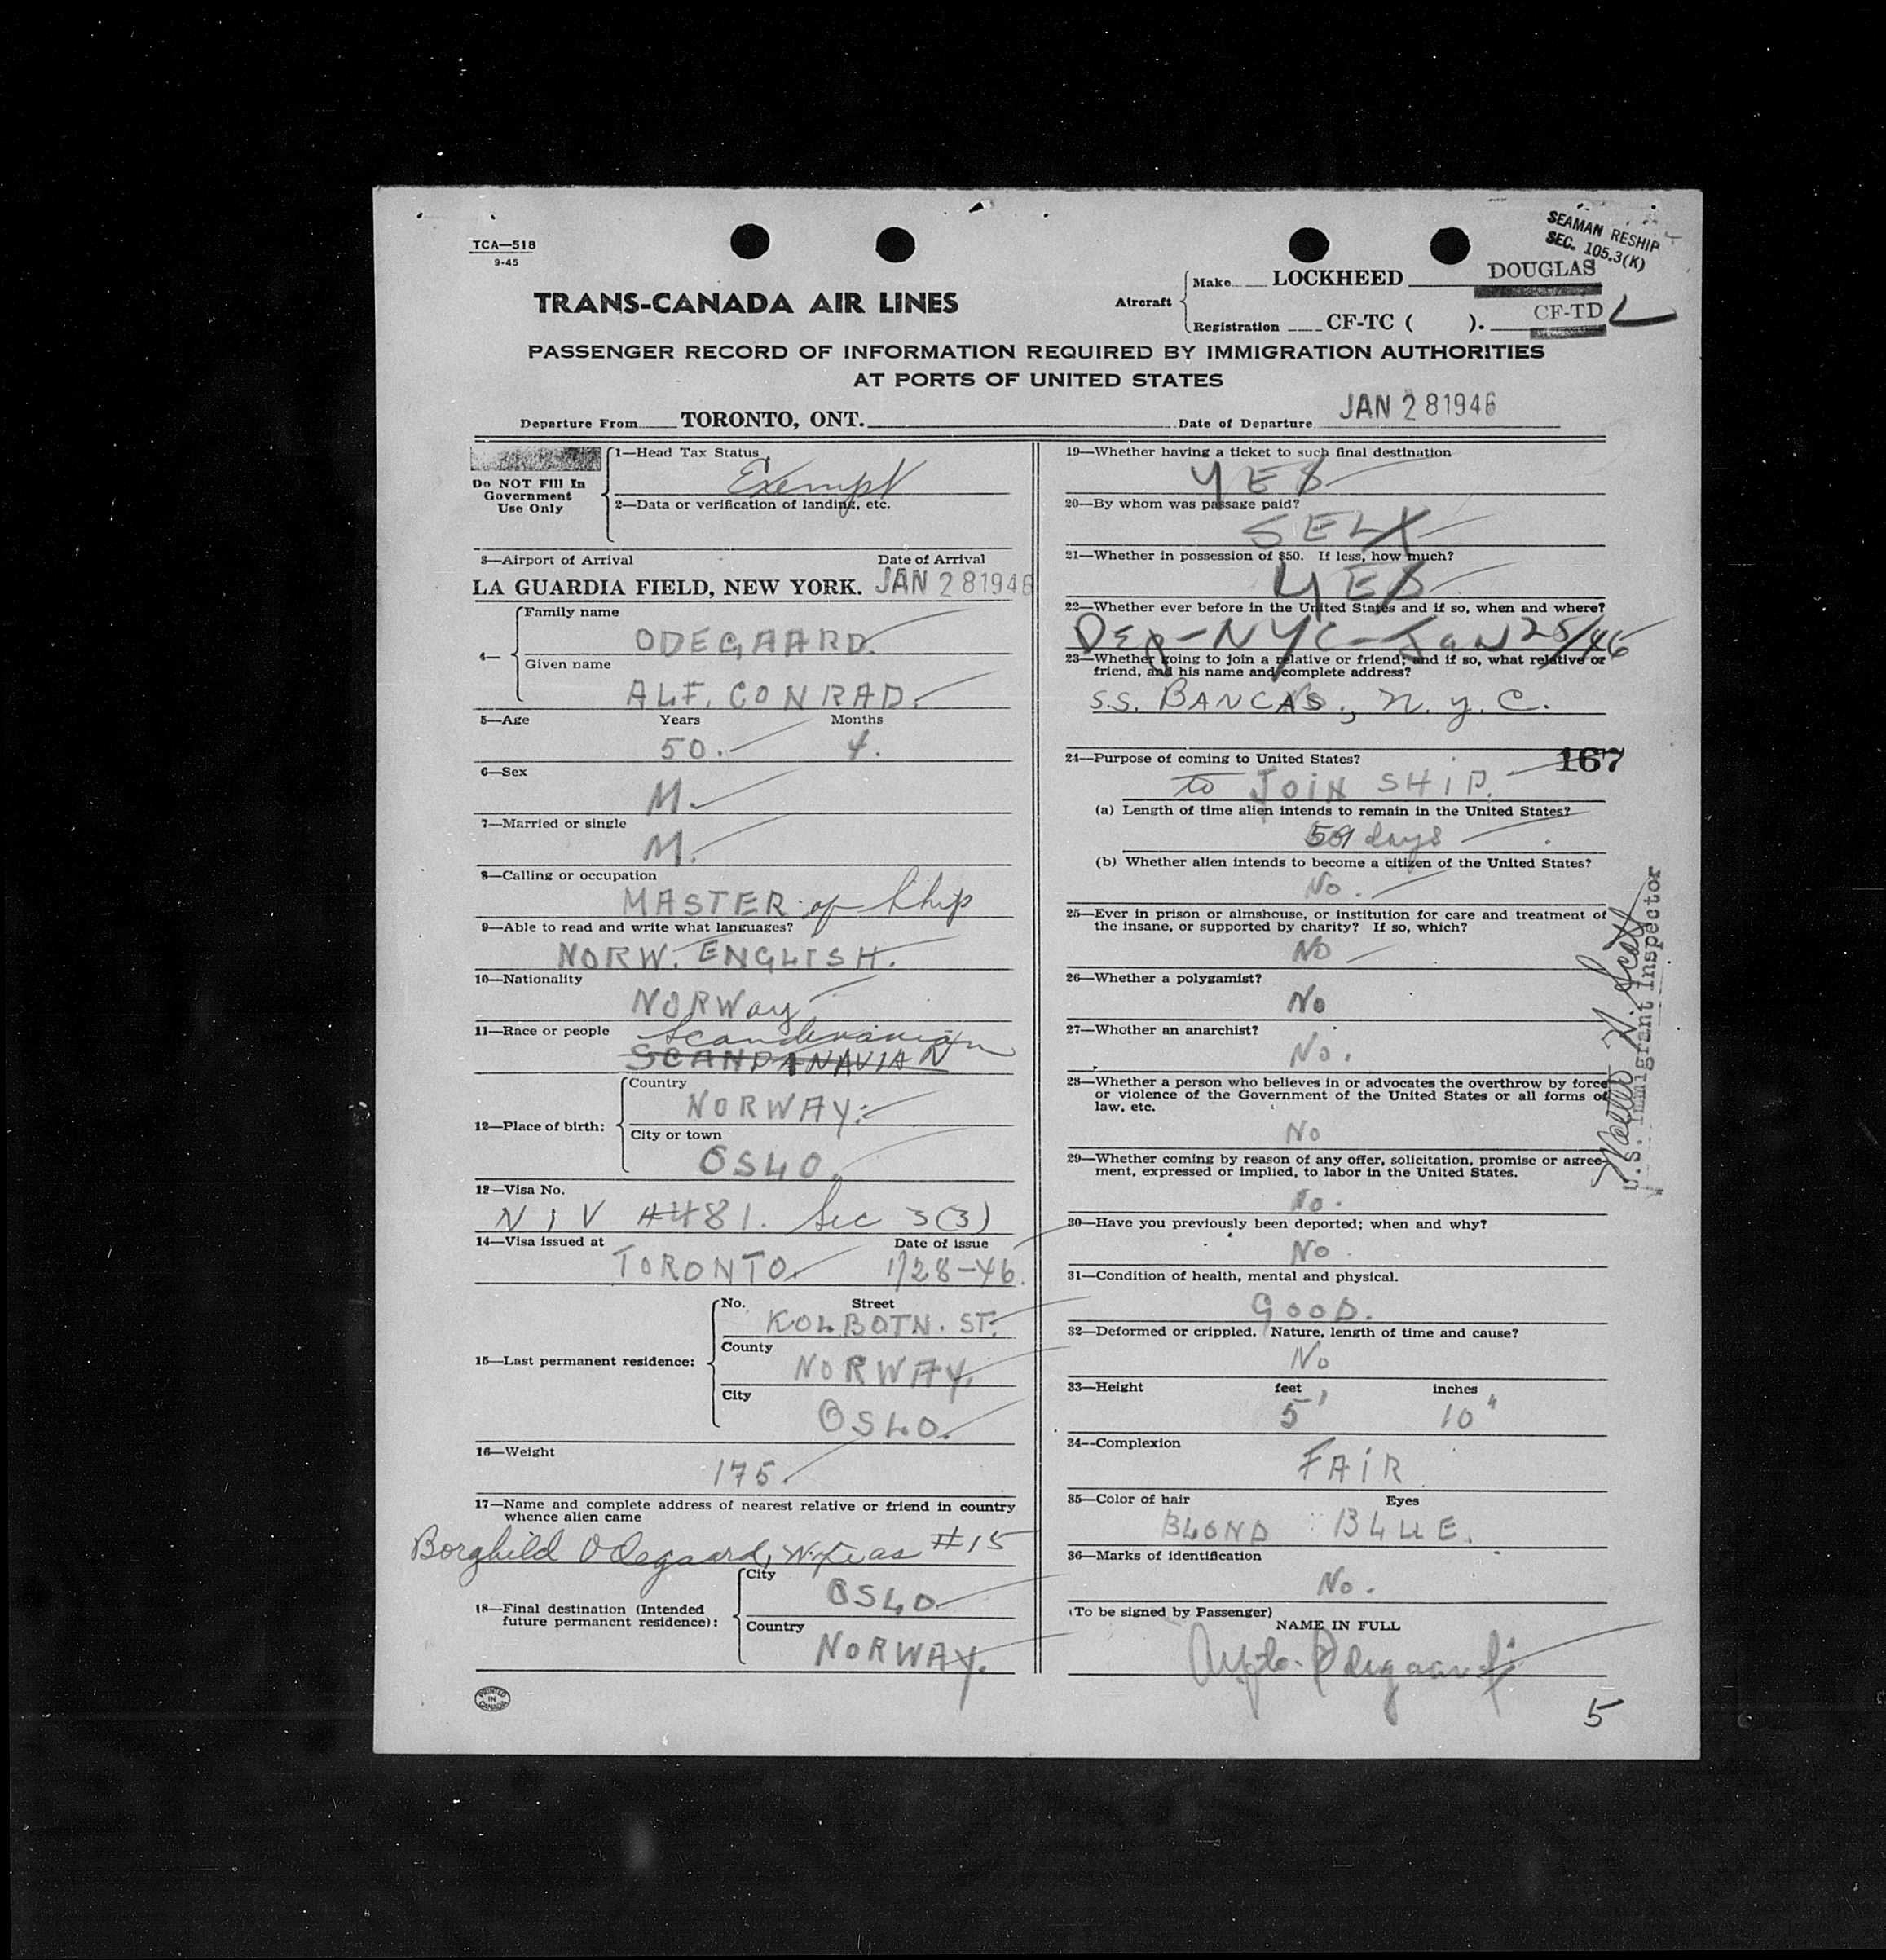 TCA—518
9-45
SEAMAN RESHIP
SEC. 105.3(K)
TRANS-CANADA AIR LINES
Aircraft
Make LOCKHEED DOUGLAS
Registration CF-TC ( ). CF-TD L
PASSENGER RECORD OF INFORMATION REQUIRED BY IMMIGRATION AUTHORITIES
AT PORTS OF UNITED STATES
Departure From TORONTO, ONT. Date of Departure JAN 281946
Do NOT Fill In
Government
Use Only
1—Head Tax Status
Exempt
2—Data or verification of landing, etc.
3—Airport of Arrival Date of Arrival
LA GUARDIA FIELD, NEW YORK. JAN 281946
4—
Family name
ODEGAARD.
Given name
ALF. CONRAD.
5—Age Years Months
50. 4.
6—Sex
M.
7—Married or single
M.
8—Calling or occupation
MASTER of Ship
9—Able to read and write what languages?
NORW. ENGLISH.
10—Nationality
NORWay
11—Race or people Scandinavian
SCANDANAVIAN
12—Place of birth:
Country
NORWAY.
City or town
OSLO.
13—Visa No.
NIV #481. Sec 3(3)
14—Visa issued at Date of issue
TORONTO. 1/28-46.
15—Last permanent residence:
No. Street
KOLBOTN. ST.
County
NORWAY.
City
OSLO.
16—Weight
175.
17—Name and complete address of nearest relative or friend in country
whence alien came
Borghild Odegaard, #15
18—Final destination (Intended
future permanent residence):
City
OSLO
Country
NORWAY.
PRINTED
IN
CANADA
19—Whether having a ticket to such final destination
YES
20—By whom was passage paid?
SELF
21—Whether in possession of $50. If less, how much?
YES
22—Whether ever before in the United States and if so, when and where?
Dep-NYC-Jan 25/46
23—Whether going to join a relative or friend; and if so, what relative or
friend, and his name and complete address?
S.S. BANCAS., N.Y.C.
24—Purpose of coming to United States? 167
to JOIN SHIP.
(a) Length of time alien intends to remain in the United States?
days
(b) Whether alien intends to become a citizen of the United States?
No.
25—Ever in prison or almshouse, or institution for care and treatment of
the insane, or supported by charity? If so, which?
NO
26—Whether a polygamist?
No
27—Whether an anarchist?
No.
28—Whether a person who believes in or advocates the overthrow by force
or violence of the Government of the United States or all forms of
law, etc.
No
29—Whether coming by reason of any offer, solicitation, promise or agree-
ment, expressed or implied, to labor in the United States.
No.
30—Have you previously been deported; when and why?
No.
31—Condition of health, mental and physical.
GOOD.
32—Deformed or crippled. Nature, length of time and cause?
No
33—Height feet inches
5' 10"
34—Complexion
FAIR
35—Color of hair Eyes
BLOND BLUE.
36—Marks of identification
No.
(To be signed by Passenger)
NAME IN FULL
Odegaard
5
U.S. Immigrant Inspector